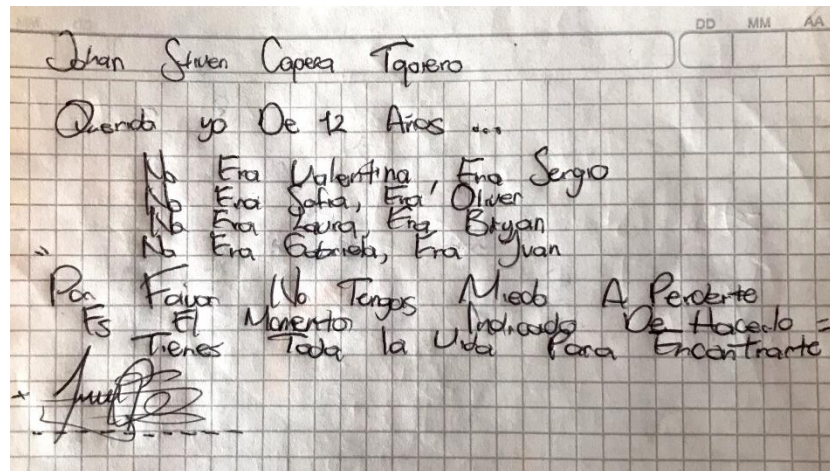 DD MM AA
Johan Stiven Capera Tqorero
Querido yo De 12 Años ...
No Era Valentina, Era Sergio
No Era Sofia, Era Oliver
No Era Laura, Era Bryan
No Era Gabriela, Era Juan
"
Por Favor No Tengas Miedo A Perderte
Es El Momento Indicado De Hacerlo =
Tienes Toda la Vida Para Encontrarte